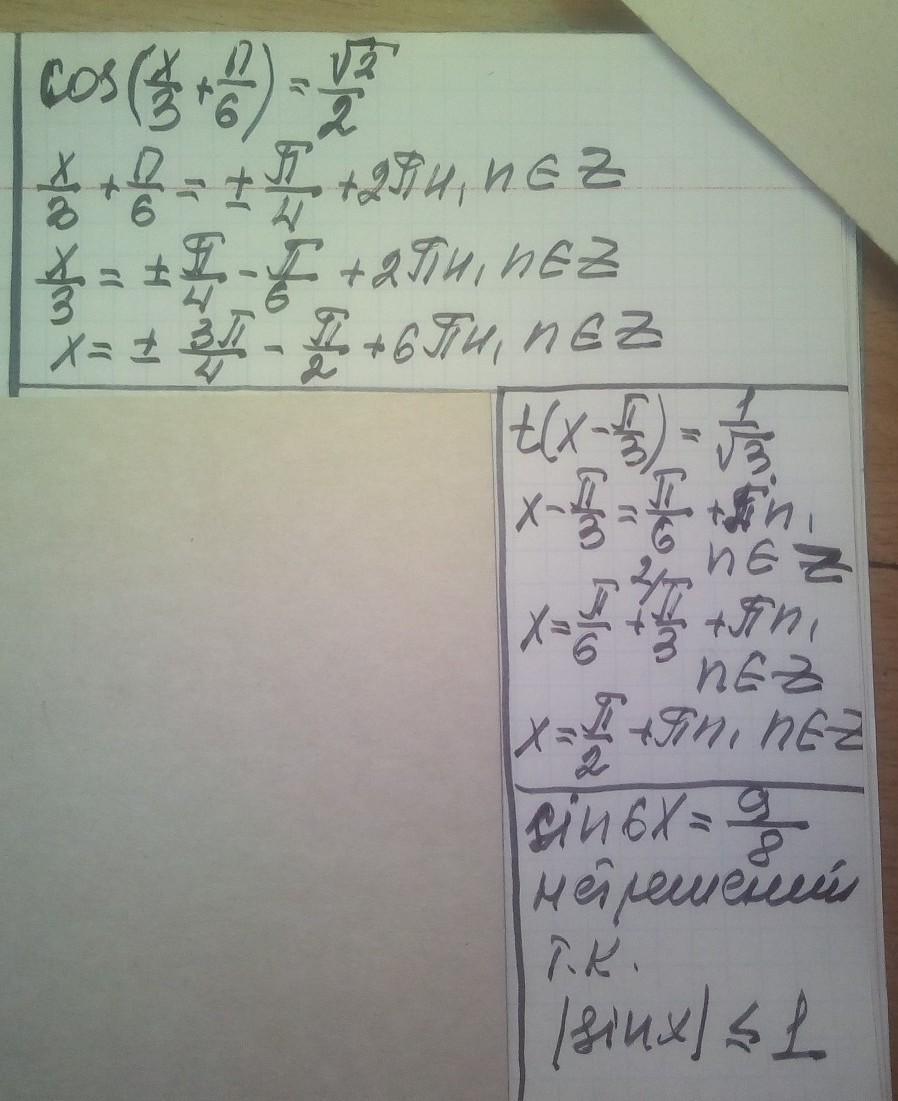 cos(x/3 + П/6) = √2/2
x/3 + П/6 = ± π/4 + 2πn, n ∈ Z
x/3 = ± π/4 - π/6 + 2πn, n ∈ Z
x = ± 3π/4 - π/2 + 6πn, n ∈ Z
t(x - π/3) = 1/√3
x - π/3 = π/6 + πn,
n ∈ Z
x = π/6 + ²⁄π/3 + πn,
n ∈ Z
x = π/2 + πn, n ∈ Z
sin6x = 9/8
нет решений
т.к.
|sinx| ≤ 1